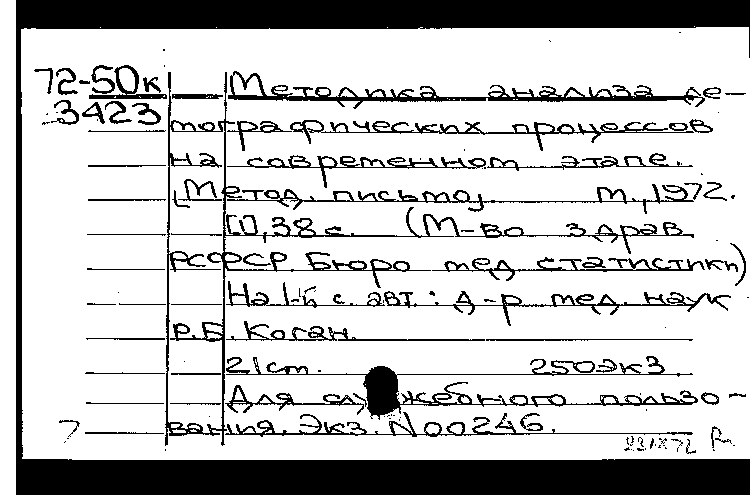 72-50к Методика анализа де-
3423 мографических процессов
на современном этапе.
[Метод. письмо]. М., 1972.
[1], 38 с. (М-во здрав.
РСФСР. Бюро мед. статистики)
На 1-й с. авт.: д-р мед. наук
Р.Б. Коган.
21 cm. 250 экз.
Для служебного пользо-
7 вания. Экз. N 00246.